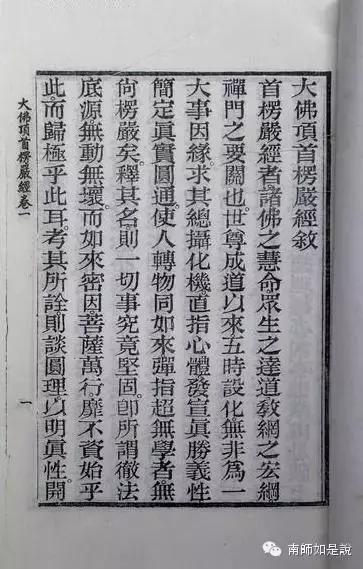 大佛頂首楞嚴經敘
首楞嚴經者。諸佛之慧命。眾生之達道。教網之宏綱。
禪門之要關也。世尊成道以來。五時設化。無非為一
大事因緣。求其總攝化機。直指心體。發宣真勝義性。
簡定真實圓通。使人轉物同如來。彈指超無學者。無
尚楞嚴矣。釋其名。則一切事究竟堅固。即所謂徹法
底源。無動無壞。而如來密因。菩薩萬行。靡不資始乎
此。而歸極乎此耳。考其所詮。則談圓理以明真性。開
大佛頂首楞嚴經卷一
一
南師如是說